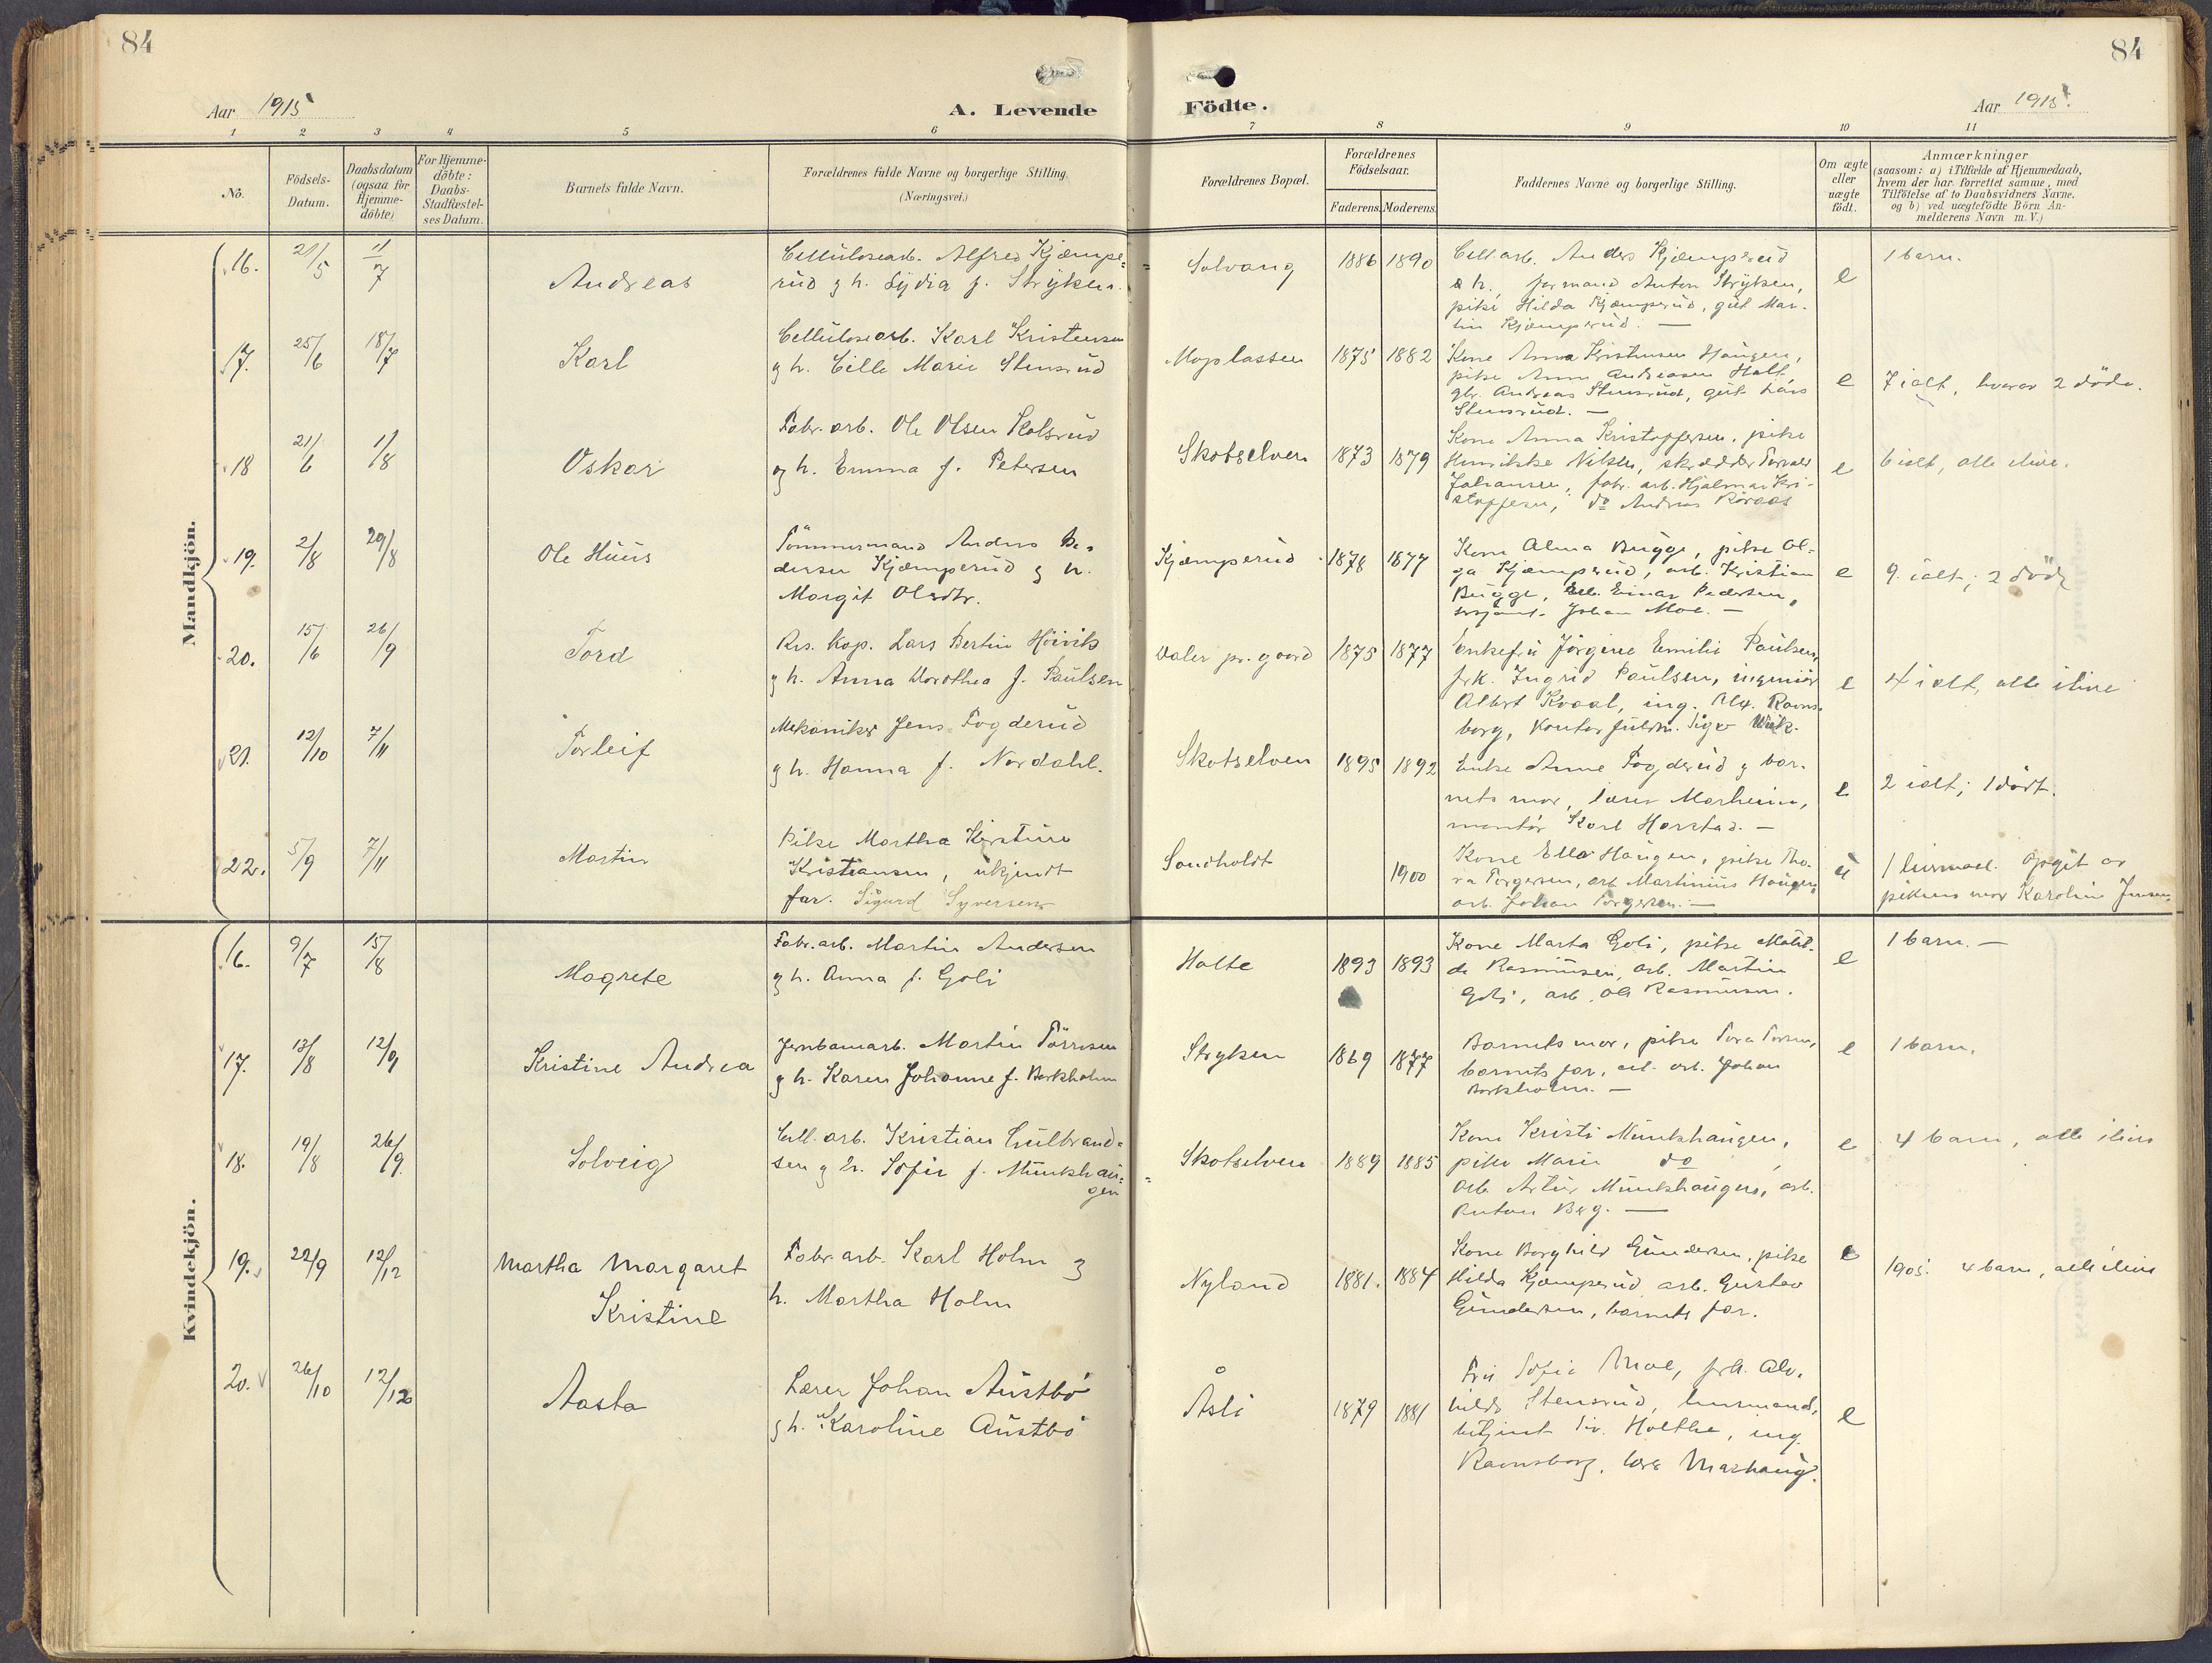 84
84
Aar 1915
A. Levende Födte.
Aar 1915.
1 2 3 4 5 6 7 8 9 10 11
No.
Födsels-Datum.
Daabsdatum (ogsaa for Hjemme-döbte)
For Hjemme-döbte: Daabs-Stadfæstel-ses Datum.
Barnets fulde Navn.
Forældrenes fulde Navne og borgerlige Stilling. (Næringsvei.)
Forældrenes Bopæl.
Forældrenes Födselsaar.
Faderens. Moderens.
Faddernes Navne og borgerlige Stilling.
Om ægte eller uægte födt.
Anmærkninger
(saasom: a) i Tilfælde af Hjemmedaab,
hvem der har forrettet samme, med
Tilföielse af to Daabsvidners Navne,
og b) ved uægtefödte Börn An-
melderens Navn m. V.)
Mandkjön.
16. 21/5 11/7 Andreas
Cellulosearb. Alfred Kjæmpe-
rud g h. Lydia f. Stryken.
Solvang 1886 1890
Cell.arb. Anders Kjæmperud
& h., formand Anton Stryken,
pike Hilda Kjæmperud, gut Mar-
tin Kjæmperud. —
e 1 barn.
17. 25/6 18/7 Karl
Cellulosearb. Karl Kristensen
g h. Cille Marie Stensrud
Moplassen 1875 1882
Kone Anna Kristensen Haugen,
pike Anna Andreasen Holt,
gbr. Andreas Stensrud, gut Lars
Stensrud. —
e 7 ialt, hvorav 2 døde.
18 21/6 1/8 Oskar
Fabr. arb. Ole Olsen Kolsrud
og h. Emma f. Petersen
Skotselven 1873 1879
Kone Anna Kristoffersen, pike
Henrikke Nilsen, skrædder Torvald
Johansen, fabr. arb. Hjalmar Kri-
stoffersen, do Andreas Röraas
e 6 ialt, alle ilive.
19. 2/8 29/8 Ole Huus
Tömmermand Anders Pe-
dersen Kjæmperud g h.
Margit Olsdtr.
Kjæmperud 1878 1877
Kone Alma Bugge, pike Ol-
ga Kjæmperud, arb. Kristian
Bugge, Cell. Einar Pedersen,
sersjant Johan Moe. —
e 9 ialt; 2 døde
20. 15/6 26/9 Tord
Res. kap. Lars Bertin Höivik
g h. Anna Dorothea f. Paulsen
Valer pr. gaard 1875 1877
Enkefru Jörgine Emilie Paulsen,
frk. Ingrid Paulsen, ingeniör
Albert Kvaal, ing. Alx. Ravns-
borg, Kontorfuldm.
e 4 ialt, alle ilive
21. 12/10 7/11 Torleif
Mekaniker Jens Fogderud
g h. Hanna f. Nordahl.
Skotselven 1895 1892
Enke Anne Fogderud g bar-
nets mor, lærer Marheim,
montör Karl Harstad. —
e 2 ialt; 1 dødt.
22. 5/9 7/11 Martin
Pike Martha Kirstine
Kristiansen, ukjendt
far. Sigurd Syversen
Sandholdt 1900
Kone Ella Haugen, pike Tho-
ra Torgersen, arb. Martinius Haugen,
arb. Johan Torgersen. —
u 1 leiermaal. Opgit av
pikens mor Karoline Jensen
Kvindekjön.
16. 9/7 15/8 Magrete
Fabr. arb. Martin Andersen
g h. Anna f. Goli
Holte 1893 1893
Kone Marta Goli, pike Matil-
de Rasmussen, arb. Martin
Goli, arb. Ole Rasmussen.
e 1 barn. —
17. 13/8 12/9 Kristine Andrea
Jernbanearb. Martin Törresen
g h. Karen Johanne f. Borkholm
Stryken 1869 1877
Barnets mor, pike Tora Torsen,
barnets far, cel. arb. Johan
Borkholm. —
e 1 barn.
18. 19/8 26/9 Solveig
Cell. arb. Kristian Gulbrand-
sen g h. Sofie f. Munkhau-
gen
Skotselven 1889 1885
Kone Kristi Munkhaugen,
pike Marie do,
arb. Artur Munkhaugen, arb.
Anton Berg. —
e 4 barn, alle ilive
19. 22/9 12/12 Martha Margaret
Kristine
Fabr. arb. Karl Holm g
h. Martha Holm
Nyland 1881. 1884
Kone Borghild Gundersen, pike
Hilda Kjæmperud arb. Gustav
Gundersen, barnets far.
e 1905. 4 barn, alle ilive
20. 26/10 12/12 Aasta
Lærer Johan Austbö
g h. Karoline Austbö
Åsli 1879 1881
Fru Sofie Moe, frk. Alv-
hilds Stensrud, lensmand,
betjent Holthe, ing.
Ravnsborg, lære Marhaug.
e